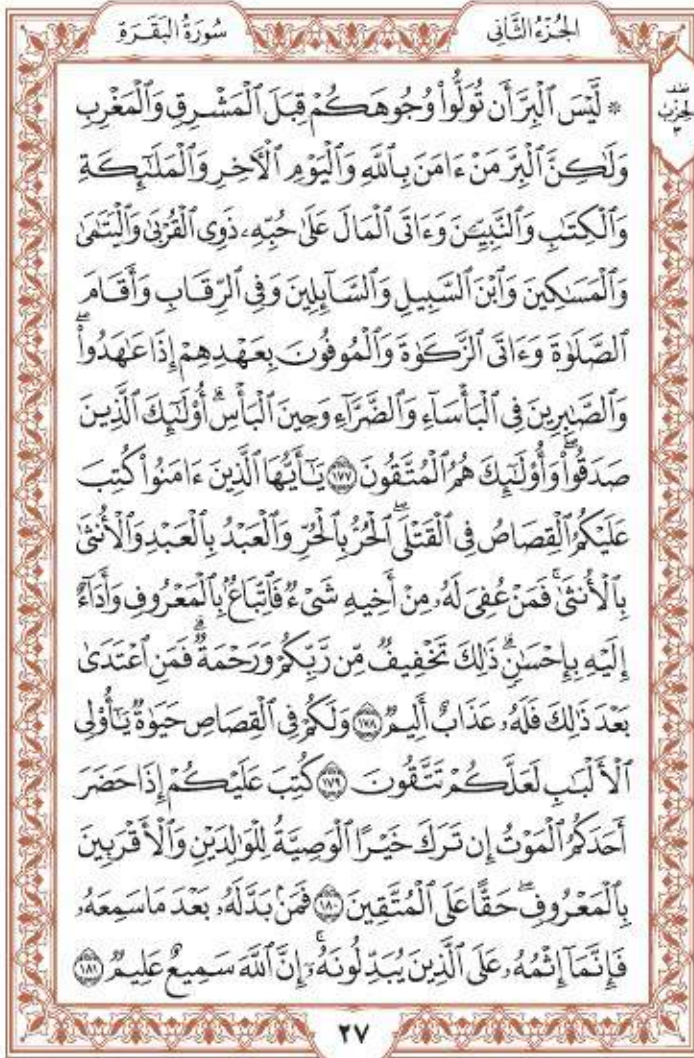 سُورَةُ البَقَرَةِ
الجُزْءُ الثَّانِي
نصف
الحزب
٣
۞ لَّيْسَ ٱلْبِرَّ أَن تُوَلُّوا۟ وُجُوهَكُمْ قِبَلَ ٱلْمَشْرِقِ وَٱلْمَغْرِبِ
وَلَٰكِنَّ ٱلْبِرَّ مَنْ ءَامَنَ بِٱللَّهِ وَٱلْيَوْمِ ٱلْأَخِرِ وَٱلْمَلَٰٓئِكَةِ
وَٱلْكِتَٰبِ وَٱلنَّبِيِّـۧنَ وَءَاتَى ٱلْمَالَ عَلَىٰ حُبِّهِۦ ذَوِى ٱلْقُرْبَىٰ وَٱلْيَتَٰمَىٰ
وَٱلْمَسَٰكِينَ وَٱبْنَ ٱلسَّبِيلِ وَٱلسَّآئِلِينَ وَفِى ٱلرِّقَابِ وَأَقَامَ
ٱلصَّلَوٰةَ وَءَاتَى ٱلزَّكَوٰةَ وَٱلْمُوفُونَ بِعَهْدِهِمْ إِذَا عَٰهَدُوا۟ۖ
وَٱلصَّٰبِرِينَ فِى ٱلْبَأْسَآءِ وَٱلضَّرَّآءِ وَحِينَ ٱلْبَأْسِۗ أُو۟لَٰٓئِكَ ٱلَّذِينَ
صَدَقُوا۟ۖ وَأُو۟لَٰٓئِكَ هُمُ ٱلْمُتَّقُونَ ١٧٧ يَٰٓأَيُّهَا ٱلَّذِينَ ءَامَنُوا۟ كُتِبَ
عَلَيْكُمُ ٱلْقِصَاصُ فِى ٱلْقَتْلَىۖ ٱلْحُرُّ بِٱلْحُرِّ وَٱلْعَبْدُ بِٱلْعَبْدِ وَٱلْأُنثَىٰ
بِٱلْأُنثَىٰۚ فَمَنْ عُفِىَ لَهُۥ مِنْ أَخِيهِ شَىْءٌ فَٱتِّبَاعٌۢ بِٱلْمَعْرُوفِ وَأَدَآءٌ
إِلَيْهِ بِإِحْسَٰنٍۗ ذَٰلِكَ تَخْفِيفٌ مِّن رَّبِّكُمْ وَرَحْمَةٌۗ فَمَنِ ٱعْتَدَىٰ
بَعْدَ ذَٰلِكَ فَلَهُۥ عَذَابٌ أَلِيمٌ ١٧٨ وَلَكُمْ فِى ٱلْقِصَاصِ حَيَوٰةٌ يَٰٓأُو۟لِى
ٱلْأَلْبَٰبِ لَعَلَّكُمْ تَتَّقُونَ ١٧٩ كُتِبَ عَلَيْكُمْ إِذَا حَضَرَ
أَحَدَكُمُ ٱلْمَوْتُ إِن تَرَكَ خَيْرًا ٱلْوَصِيَّةُ لِلْوَٰلِدَيْنِ وَٱلْأَقْرَبِينَ
بِٱلْمَعْرُوفِۖ حَقًّا عَلَى ٱلْمُتَّقِينَ ١٨٠ فَمَنۢ بَدَّلَهُۥ بَعْدَ مَا سَمِعَهُۥ
فَإِنَّمَآ إِثْمُهُۥ عَلَى ٱلَّذِينَ يُبَدِّلُونَهُۥٓۚ إِنَّ ٱللَّهَ سَمِيعٌ عَلِيمٌ ١٨١
٢٧